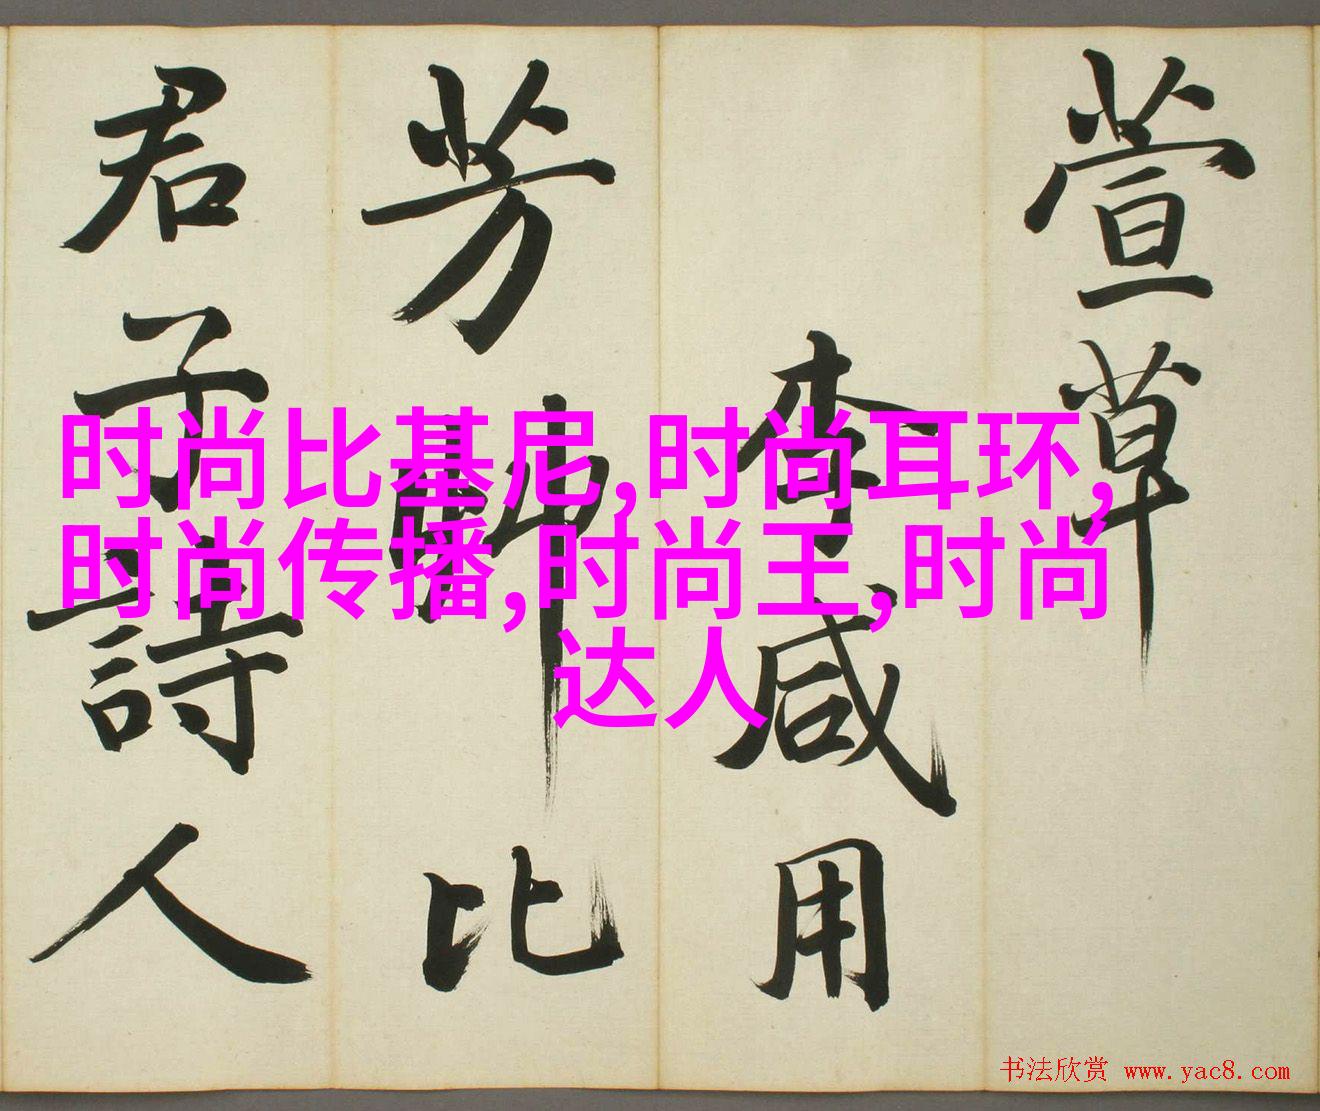 萱草
李咸用
芳艸比
君子詩人
时尚比基尼,时尚耳环,
时尚传播,时尚王,时尚
达人
书法欣赏 www.yac8.com